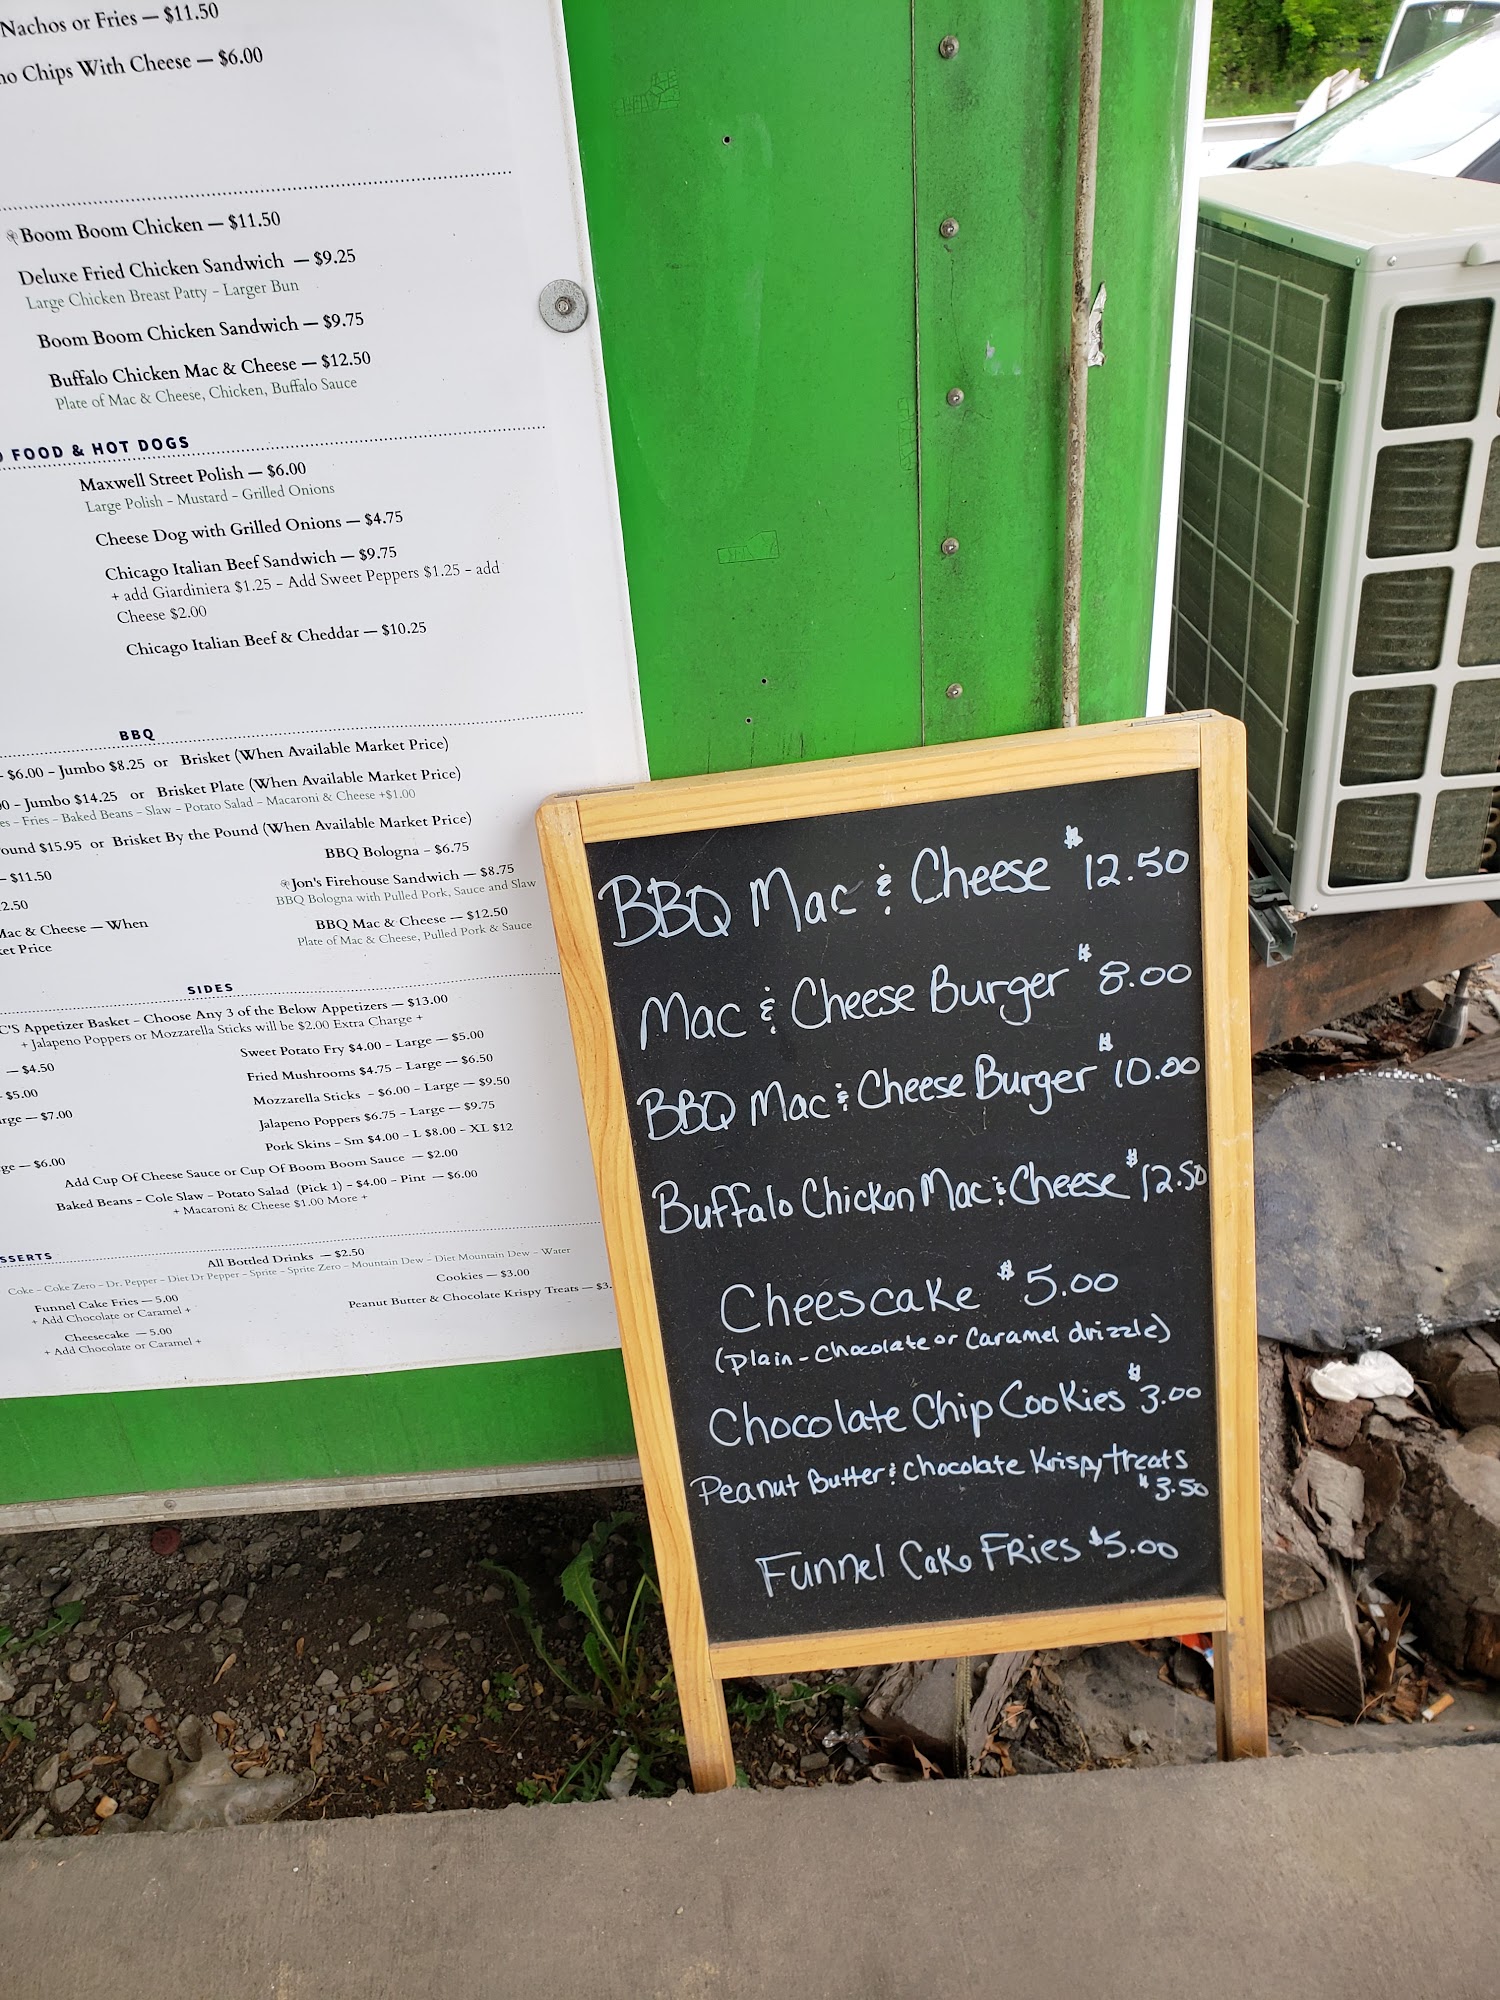 Nachos or Fries — $11.50
Chips With Cheese — $6.00
Boom Boom Chicken — $11.50
Deluxe Fried Chicken Sandwich — $9.25
Large Chicken Breast Patty - Larger Bun
Boom Boom Chicken Sandwich — $9.75
Buffalo Chicken Mac & Cheese — $12.50
Plate of Mac & Cheese, Chicken, Buffalo Sauce
FOOD & HOT DOGS
Maxwell Street Polish — $6.00
Large Polish - Mustard - Grilled Onions
Cheese Dog with Grilled Onions — $4.75
Chicago Italian Beef Sandwich — $9.75
+ add Giardiniera $1.25 - Add Sweet Peppers $1.25 - add
Cheese $2.00
Chicago Italian Beef & Cheddar — $10.25
BBQ
- $6.00 - Jumbo $8.25 or Brisket (When Available Market Price)
- Jumbo $14.25 or Brisket Plate (When Available Market Price)
- Fries - Baked Beans - Slaw - Potato Salad - Macaroni & Cheese +$1.00
$15.95 or Brisket By the Pound (When Available Market Price)
— $11.50
Mac & Cheese — When
Price
BBQ Bologna - $6.75
Jon's Firehouse Sandwich — $8.75
BBQ Bologna with Pulled Pork, Sauce and Slaw
BBQ Mac & Cheese — $12.50
Plate of Mac & Cheese, Pulled Pork & Sauce
SIDES
Appetizer Basket - Choose Any 3 of the Below Appetizers — $13.00
+ Jalapeno Poppers or Mozzarella Sticks will be $2.00 Extra Charge +
— $4.50
- $5.00
— $7.00
— $6.00
Sweet Potato Fry $4.00 - Large — $5.00
Fried Mushrooms $4.75 - Large — $6.50
Mozzarella Sticks - $6.00 - Large — $9.50
Jalapeno Poppers $6.75 - Large — $9.75
Pork Skins - Sm $4.00 - L $8.00 - XL $12
Add Cup Of Cheese Sauce or Cup Of Boom Boom Sauce — $2.00
Baked Beans - Cole Slaw - Potato Salad (Pick 1) - $4.00 - Pint — $6.00
+ Macaroni & Cheese $1.00 More +
All Bottled Drinks — $2.50
Coke - Coke Zero - Dr. Pepper - Diet Dr Pepper - Sprite - Sprite Zero - Mountain Dew - Diet Mountain Dew - Water
Funnel Cake Fries — 5.00
+ Add Chocolate or Caramel +
Cheesecake — 5.00
+ Add Chocolate or Caramel +
Cookies — $3.00
Peanut Butter & Chocolate Krispy Treats — $3.
BBQ Mac & Cheese $12.50
Mac & Cheese Burger $8.00
BBQ Mac & Cheese Burger $10.00
Buffalo Chicken Mac & Cheese $12.50
Cheescake $5.00
(Plain - Chocolate or Caramel drizzle)
Chocolate Chip Cookies $3.00
Peanut Butter & Chocolate Krispy treats
$3.50
Funnel Cake Fries $5.00